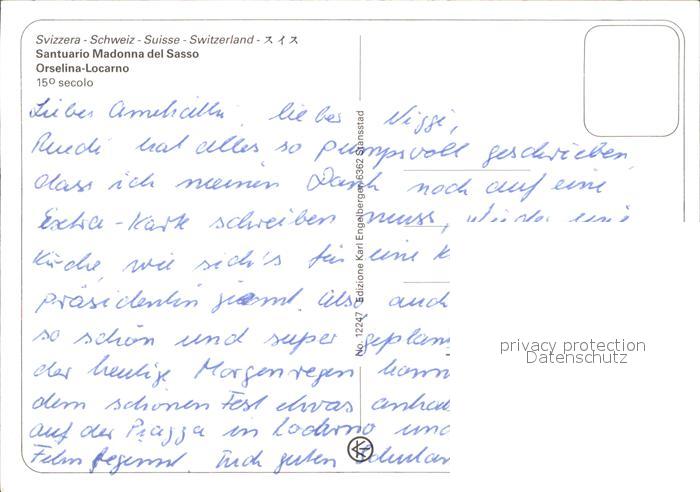 Svizzera - Schweiz - Suisse - Switzerland - スイス
Santuario Madonna del Sasso
Orselina-Locarno
15º secolo
No. 12247 Edizione Karl Engelberger, 6362 Stansstad
Lieber lieber Niggi,
Ruedi hat alles so pumpsvoll geschrieben,
dass ich meinen Dank noch auf eine
Extra-Karte schreiben muss, wieder eine
Küche, wie sich's für eine K
präsidentin ziemt. Also auch
so schön und super geplan
der heutige Morgenregen konn
dem schönen Fest etwas anhab
auf der Piazza in Locarno und
Film beginnt. Euch guten
privacy protection
Datenschutz